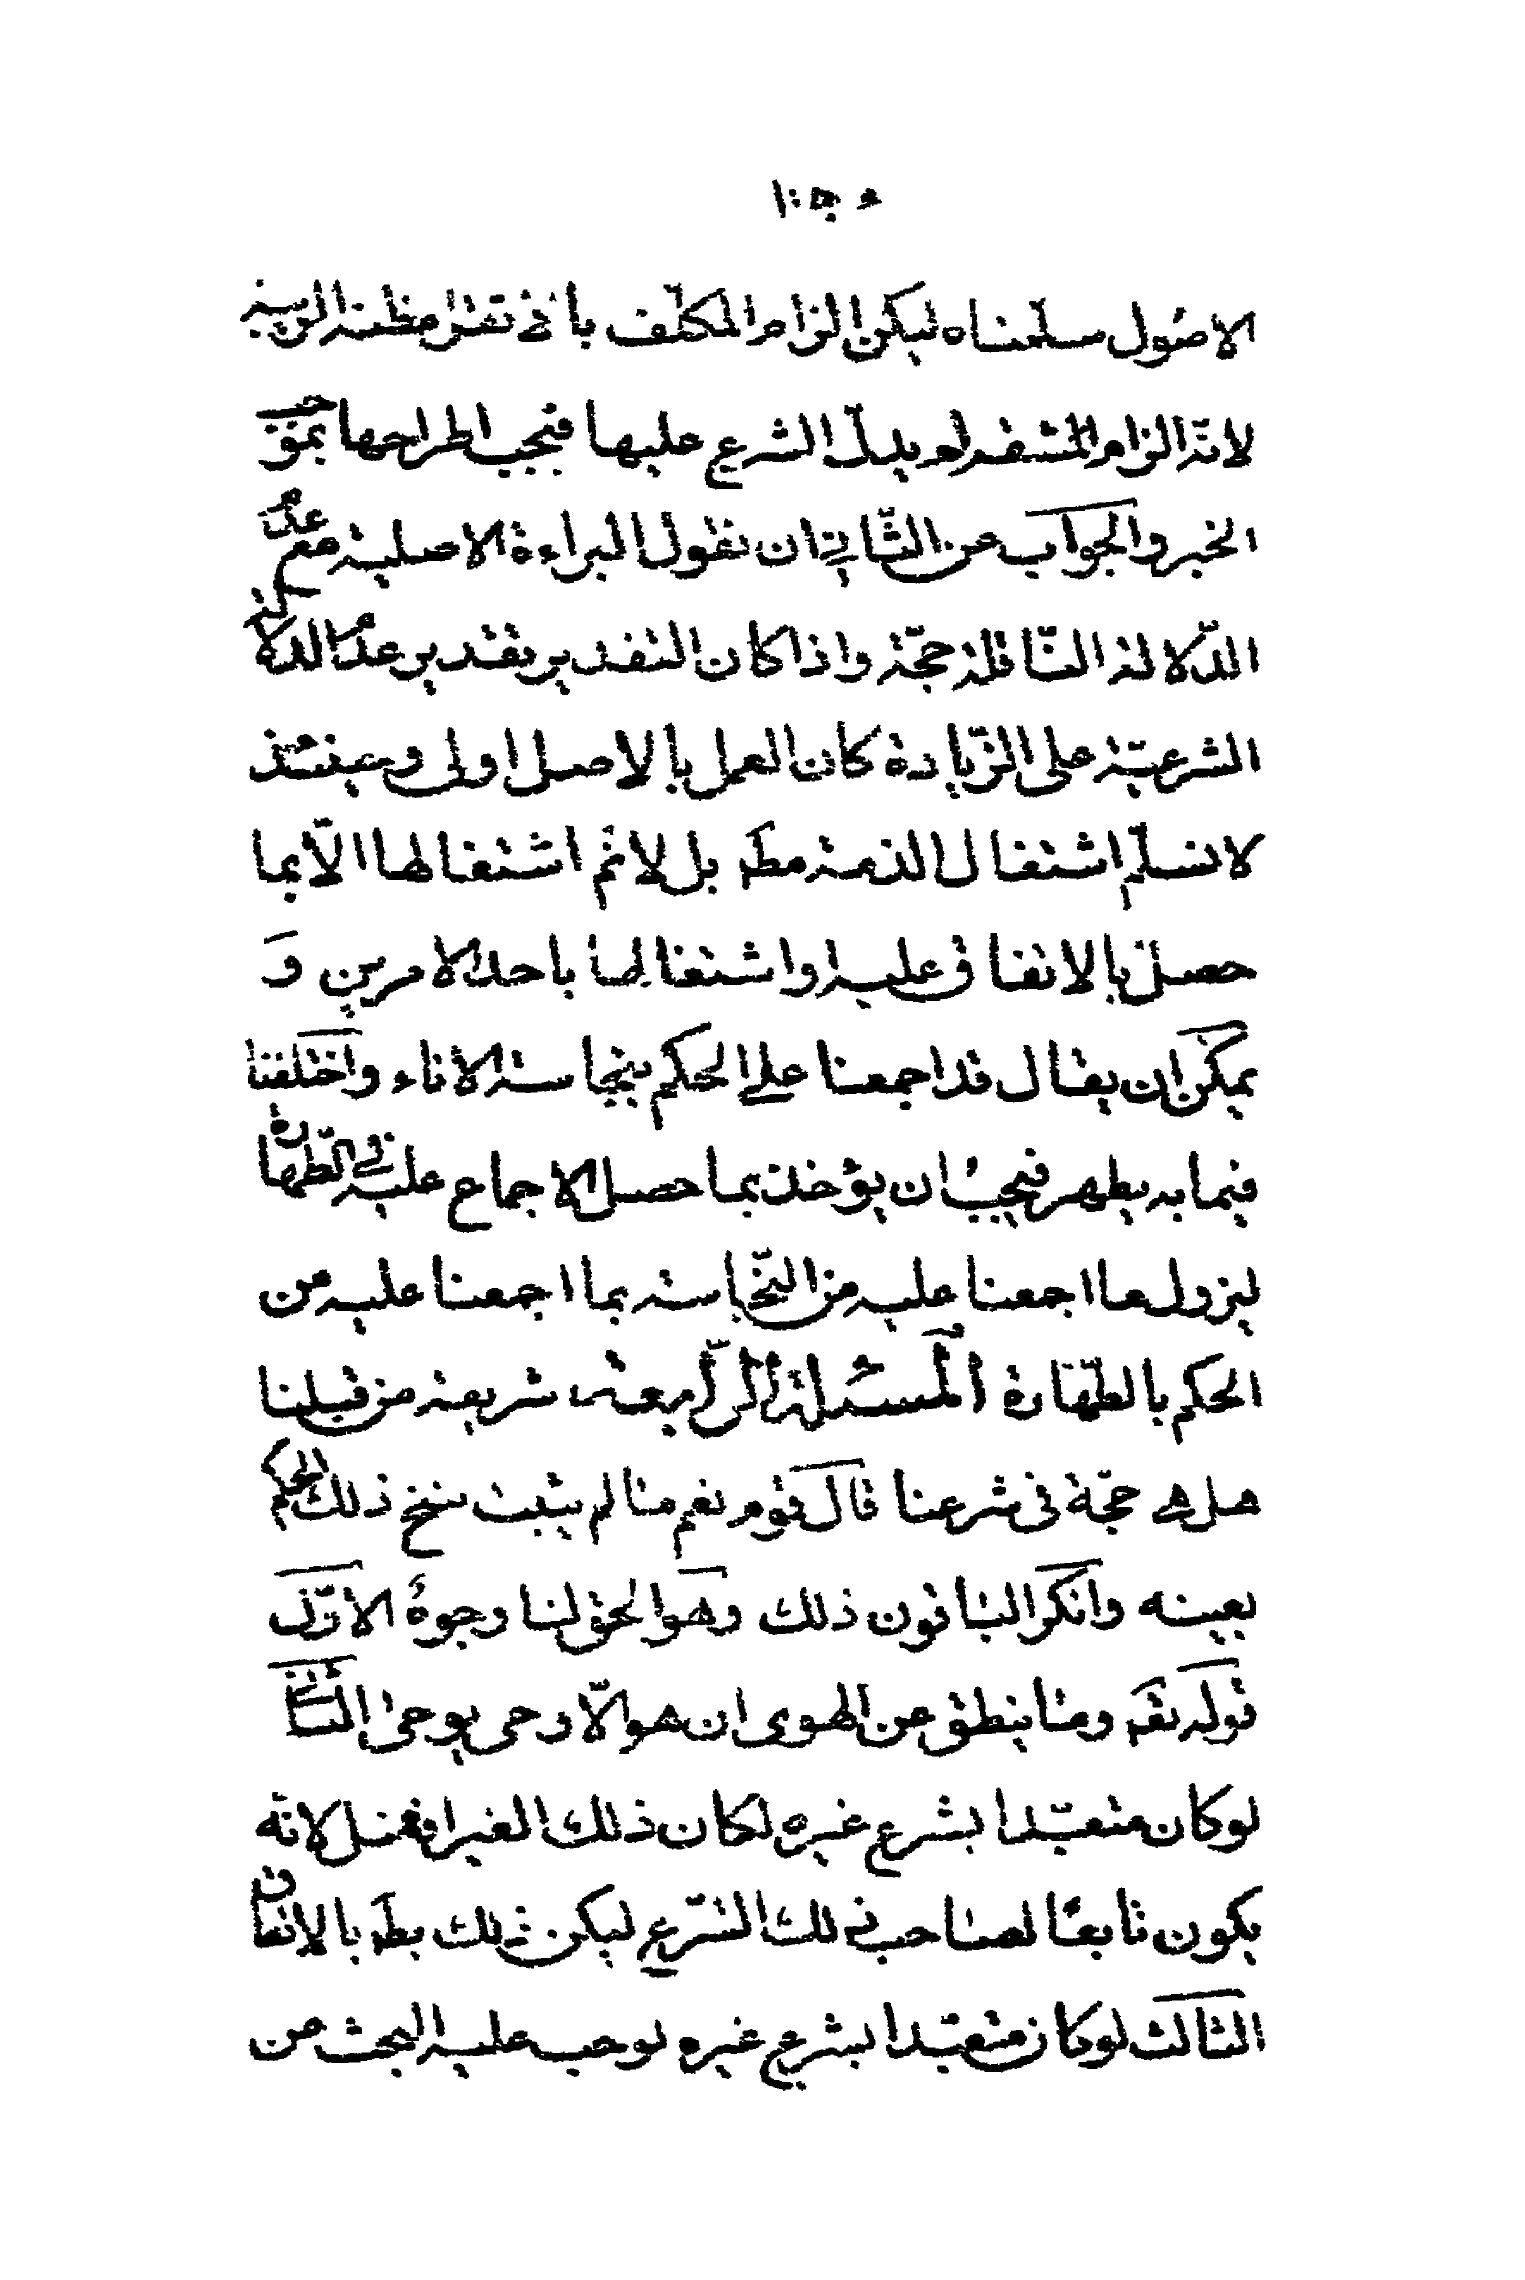 الاصول سلمناه ليكن الزام المكلف بالاثقل مظنة الريبة
لانه الزام المشقة لم يدل الشرع عليها فيجب اطراحها بموجب
الخبر والجواب عن الثانى ان نقول البراءة الاصلية مع عدم
الدلالة الناقلة حجة واذا كان التقدير تقدير عدم الدلالة
الشرعية على الزيادة كان العمل بالاصل اولى وحينئذ
لا نسلم اشتغال الذمة مطم بل لا نم اشتغالها الا بما
حصل بالاتفاق عليه او اشتغالها باحد الامرين و
يمكن ان يقال قد اجمعنا على الحكم بنجاسة الاناء واختلفنا
فيما به يطهر فيجب ان يؤخذ بما حصل الاجماع عليه فى الطهارة
ليزول ما اجمعنا عليه من النجاسة بما اجمعنا عليه من
الحكم بالطهارة المسئلة الرابعة شريعة من قبلنا
هل هى حجة فى شرعنا قال قوم نعم ما لم يثبت نسخ ذلك الحكم
بعينه وانكر الباقون ذلك وهو الحق لنا وجوه الاول
قوله تعم وما ينطق عن الهوى ان هو الا وحى يوحى الثانى
لو كان متعبدا بشرع غيره لكان ذلك الغير افضل لانه
يكون تابعا لصاحب ذلك الشرع ليكن ذلك بط بالاتفاق
الثالث لو كان متعبدا بشرع غيره لوجب عليه البحث عن